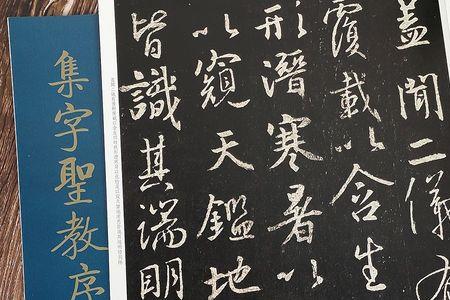 盖聞二儀有
覆載以含生
形潛寒暑以
以窺天鑑地
皆識其端明
集字聖教序